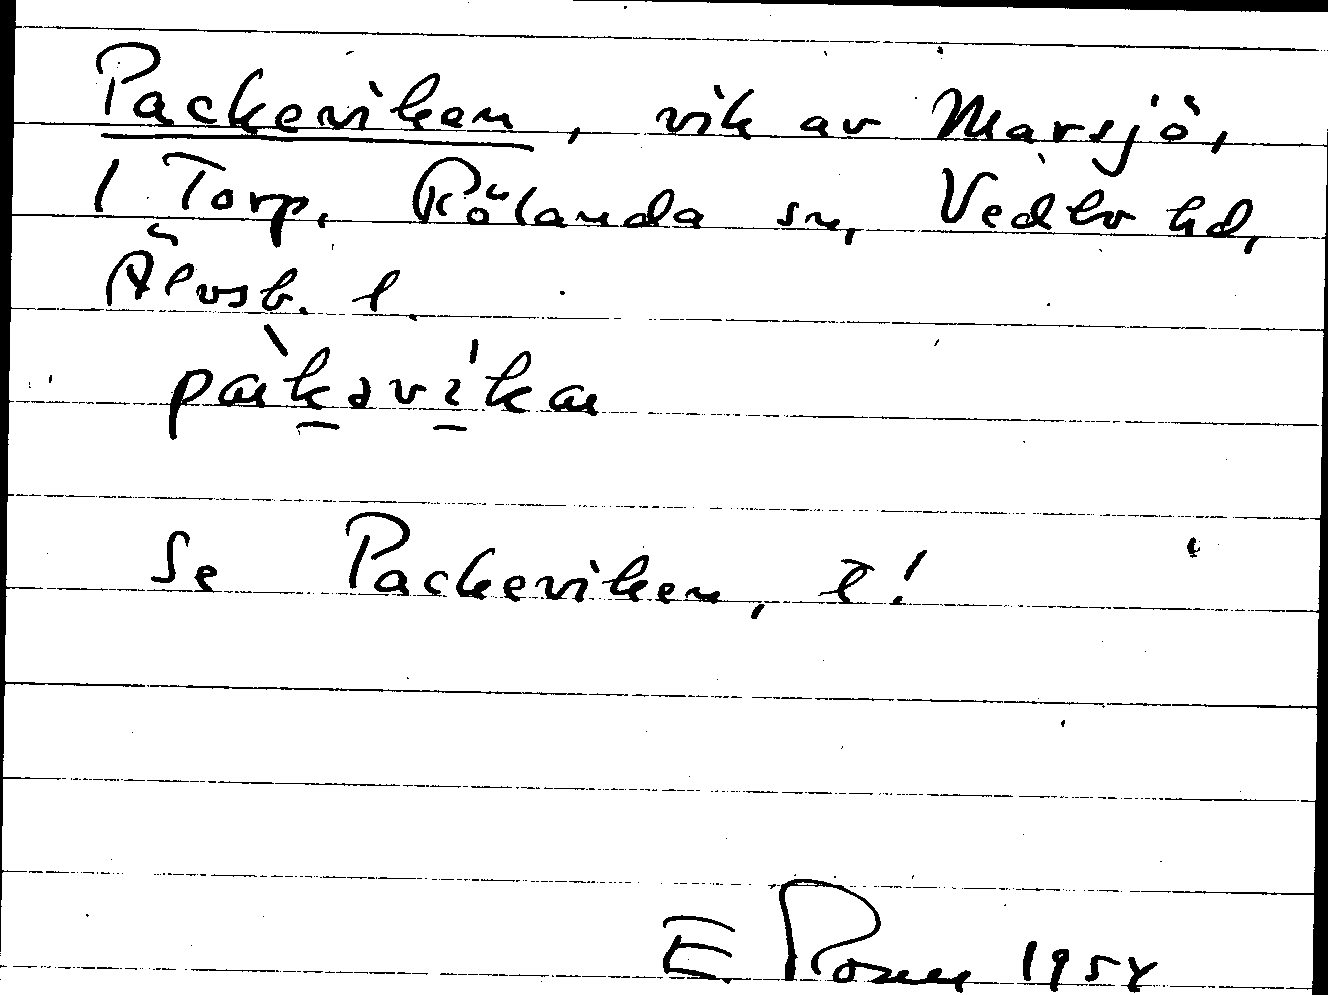 Packeviken, vik av Marsjö,
1 Torp. Rölanda sn, Vedbo hd,
Älvsb. l.
Se Packeviken, l!
E. Rosen 1954